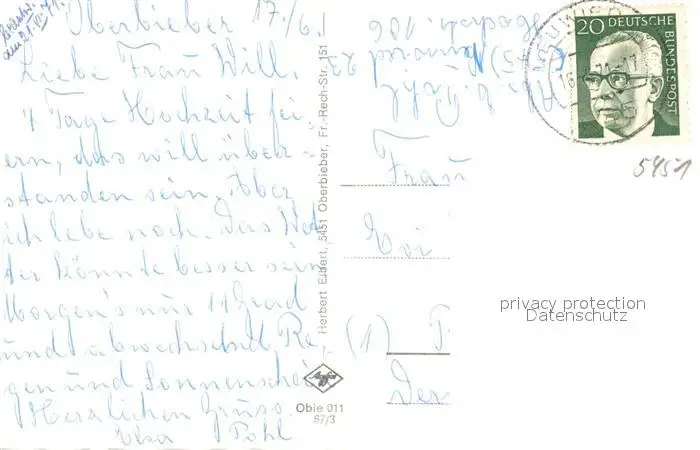 Oberbieber 17./6.
Liebe Frau Will,
4 Tage Hochzeit fei-
ern, das will über-
standen sein. Aber
ich lebe noch. Das Wet
ter könnte besser sein
Morgen's nur 11 Grad
und abwechselnd Re-
gen und Sonnenschein
Herzlichen Gruss
Elsa Pohl
Herbert Elbert, 5451 Oberbieber, Fr.-Rech-Str. 151
Agfa
Obie 011
67/3
Abs. E. Pohl
(5) Neuwied 23
106
NEUWIED
20 DEUTSCHE
BUNDESPOST
5451
Frau
(1)
privacy protection
Datenschutz